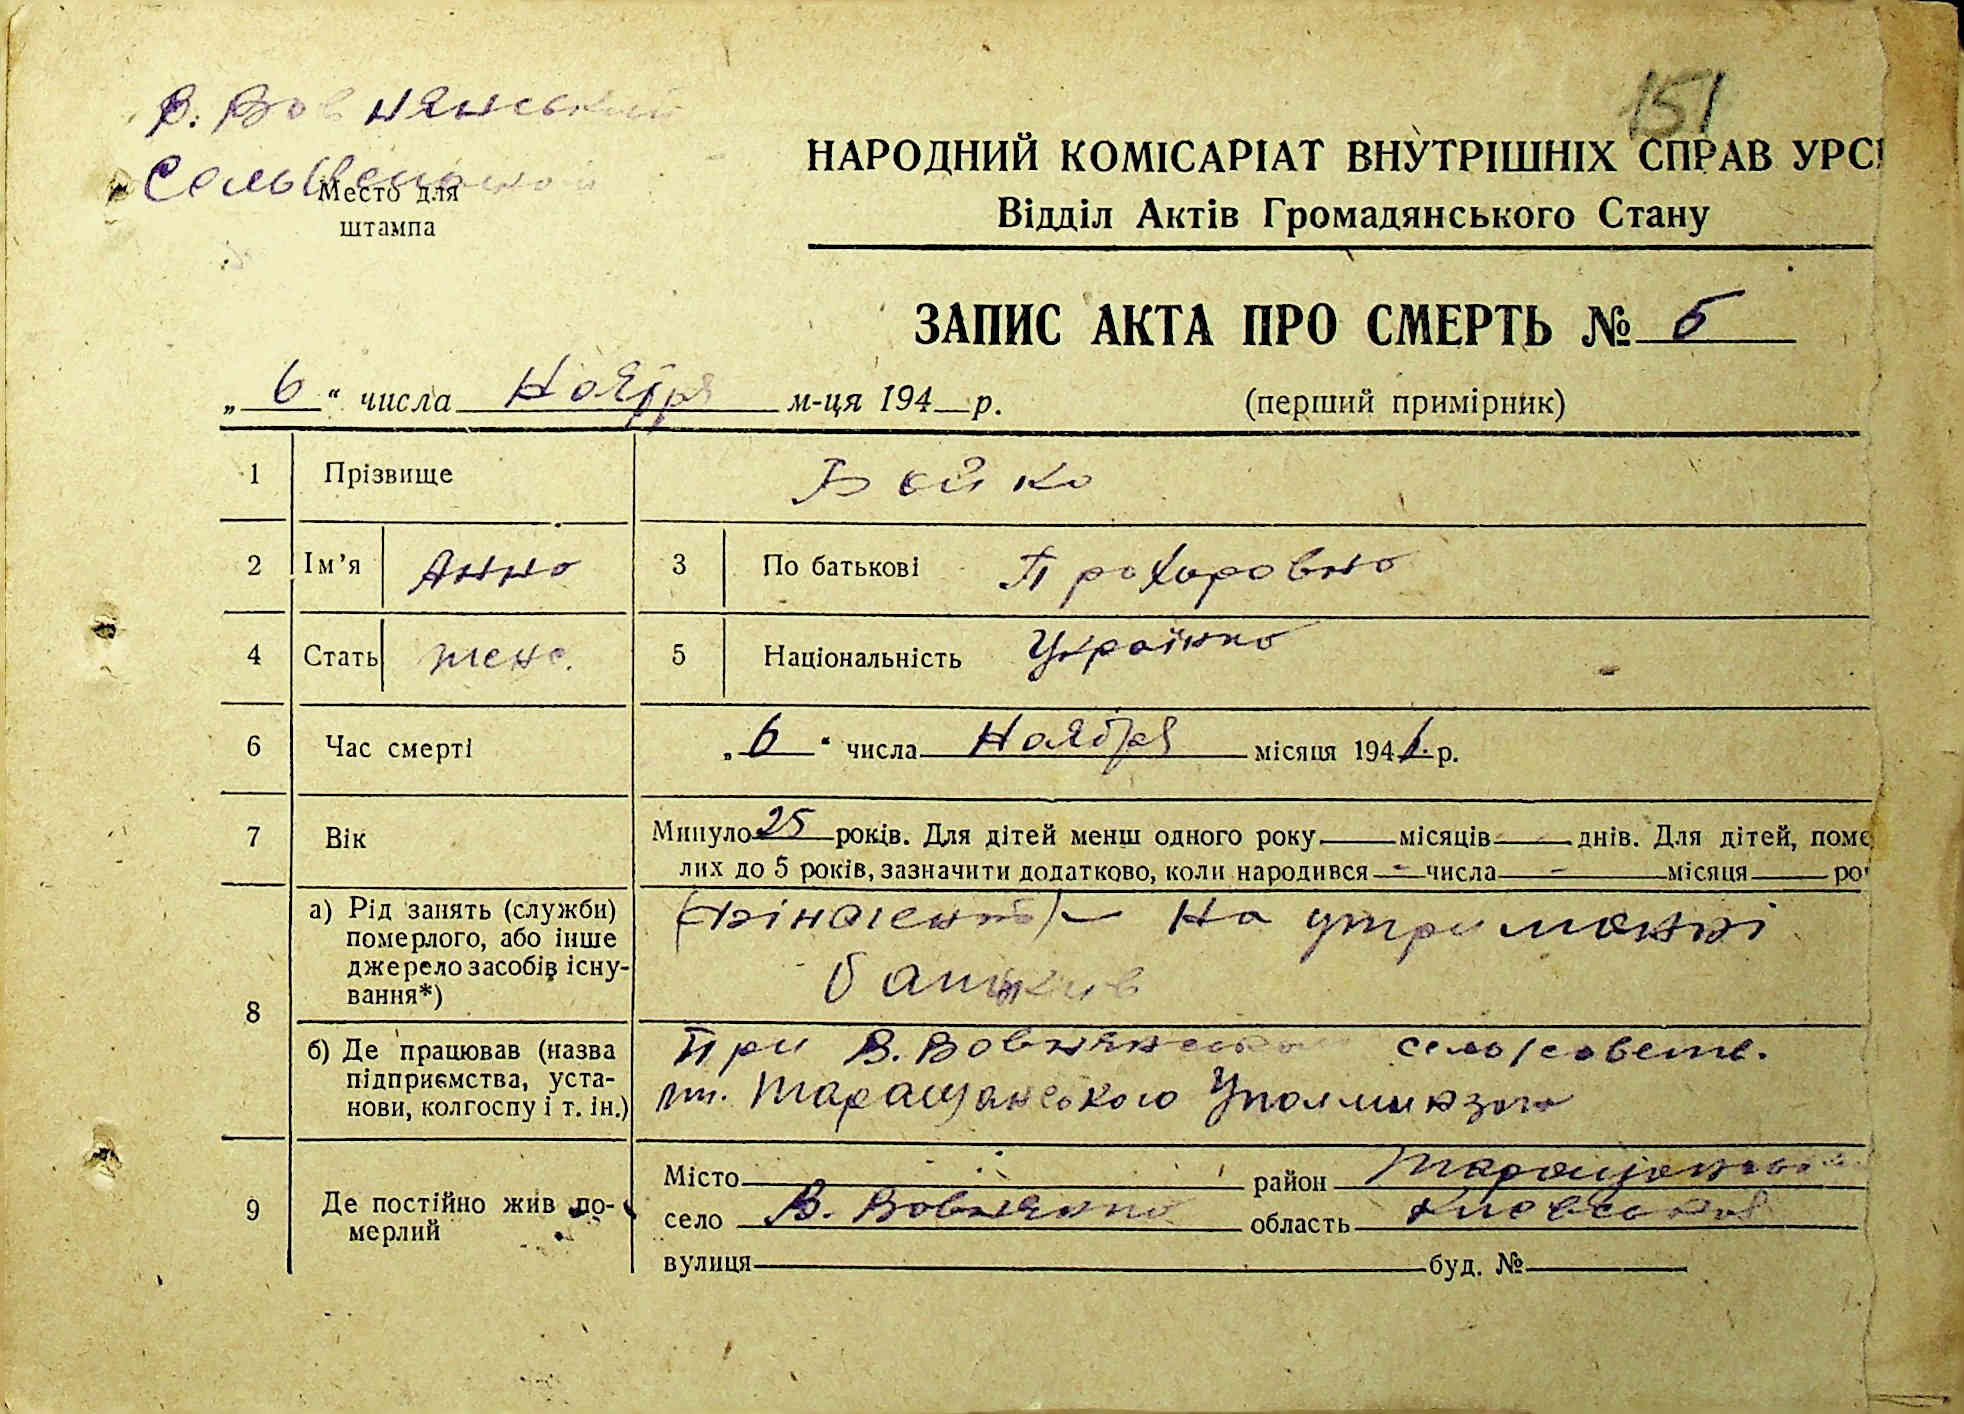 151
В. Вовнянський
Место для
штампа
НАРОДНИЙ КОМІСАРІАТ ВНУТРІШНІХ СПРАВ УРС
Відділ Актів Громадянського Стану
ЗАПИС АКТА ПРО СМЕРТЬ № 5
„ 6 “ числа Ноября м-ця 194 р. (перший примірник)
1 Прізвище Бойко
2 Ім’я Анна 3 По батькові Прохоровна
4 Стать женс. 5 Національність Українка
6 Час смерті „ 6 “ числа Ноября місяця 1941 р.
7 Вік Минуло 25 років. Для дітей менш одного року місяців днів. Для дітей, поме
лих до 5 років, зазначити додатково, коли народився - числа - місяця ро
8 а) Рід занять (служби) На утриманні
померлого, або інше
джерело засобів існу- батьків
вання*)
б) Де працював (назва При В. Вовнянском
підприємства, уста-
нови, колгоспу і т. ін.) Таращанського
9 Де постійно жив по-
мерлий
Місто район Таращанський
село В. Вовнянка область Киевская
вулиця буд. №